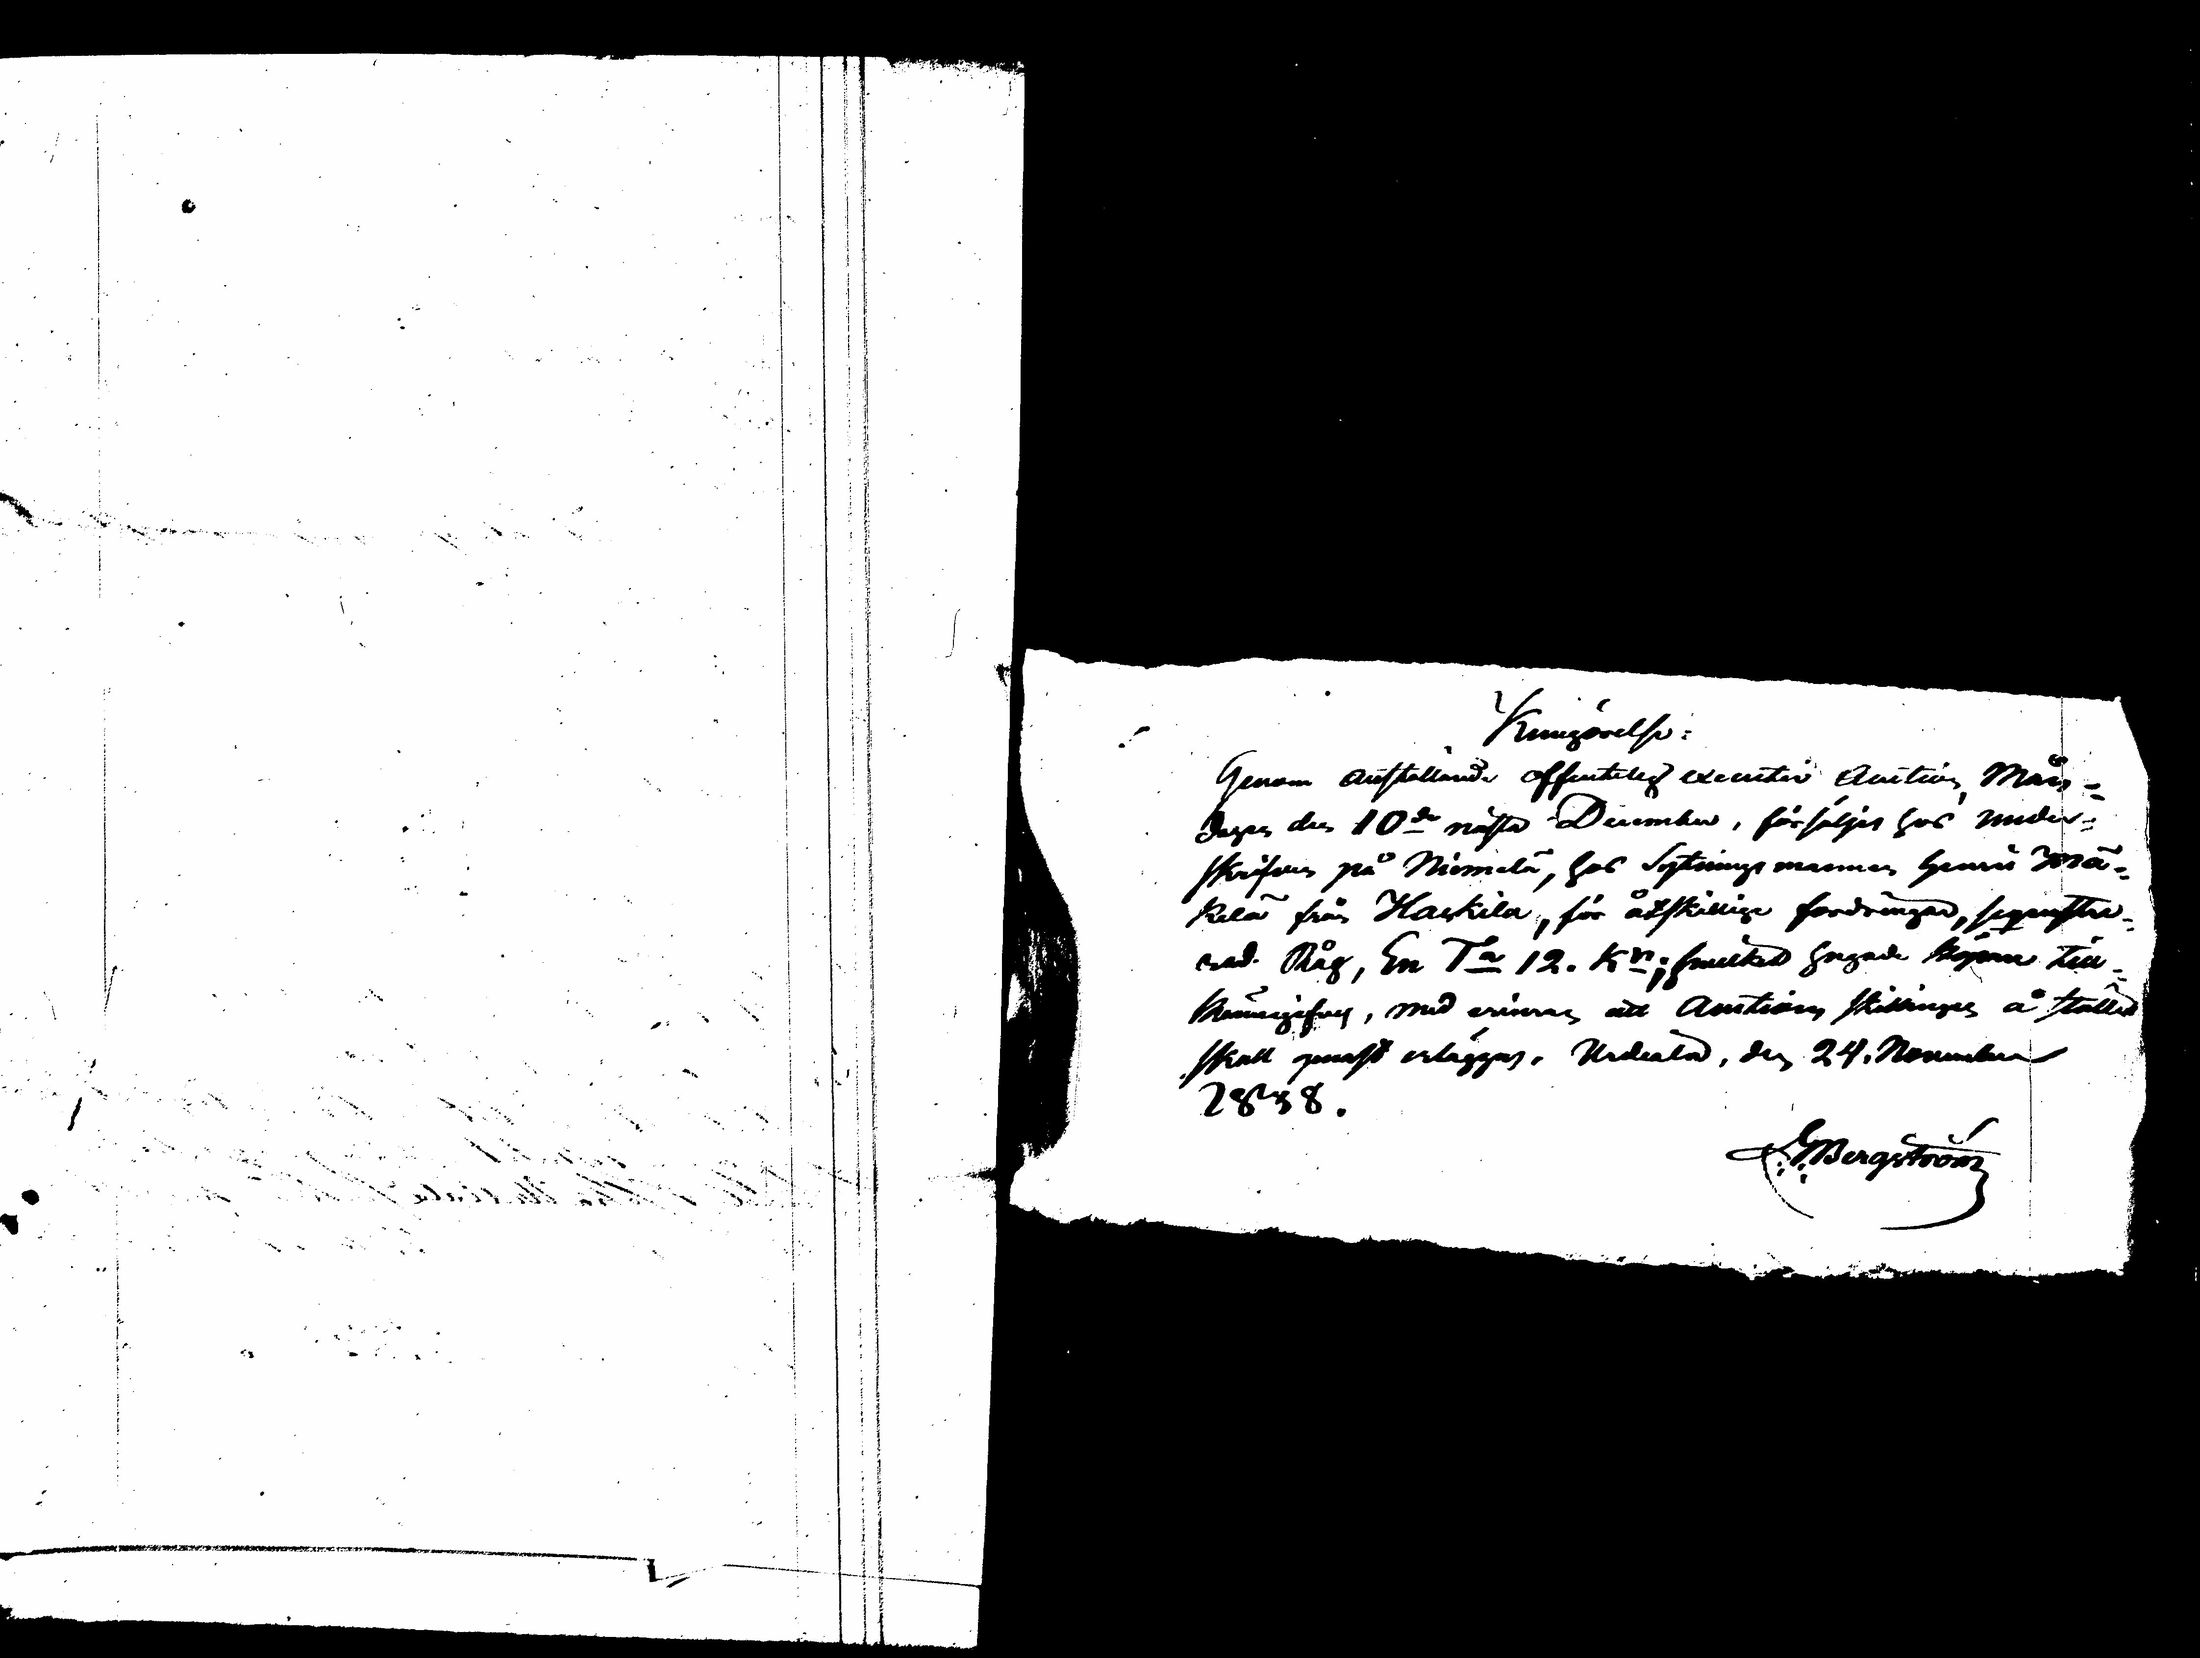 Kungörelse:
Genom anställande offentelig executiv Auction, Mån-
dagen den 10de nästa December, försäljes hos under-
skrifven på Niemelä, hos Sexmannen Henric Mä-
kelä från Hackila, för åtskillige fordringar, sequestre-
rad Råg, En Ta 12. Kr; hvilket hugade köpare till
kännagifves, med erinran att Auctions skillingen å stället
skall genast erläggas. Urdiala, den 24. November
1838.
Bergström